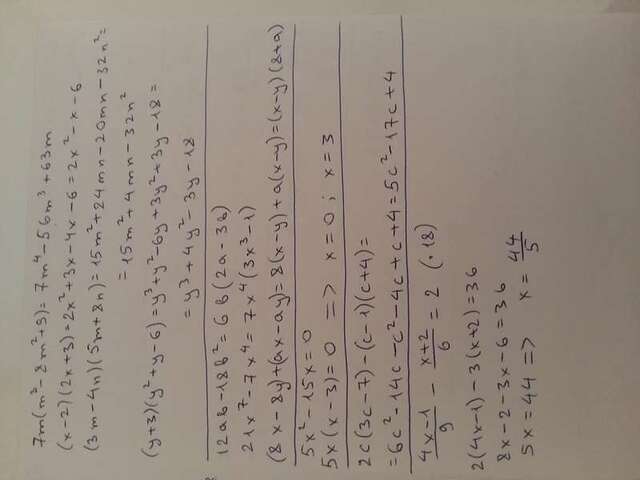 7m(m³-8m²+9)=7m⁴-56m³+63m
(x-2)(2x+3)=2x²+3x-4x-6=2x²-x-6
(3m-4n)(5m+8n)=15m²+24mn-20mn-32n²=
=15m²+4mn-32n²
(y+3)(y²+y-6)=y³+y²-6y+3y²+3y-18=
=y³+4y²-3y-18
12ab-18b²=6b(2a-3b)
21x⁷-7x⁴=7x⁴(3x³-1)
(8x-8y)+(ax-ay)=8(x-y)+a(x-y)=(x-y)(8+a)
5x²-15x=0
5x(x-3)=0 => x=0; x=3
2c(3c-7)-(c-1)(c+4)=
=6c²-14c-c²-4c+c+4=5c²-17c+4
(4x-1)/9 - (x+2)/6 = 2 (·18)
2(4x-1)-3(x+2)=36
8x-2-3x-6=36
5x=44 => x=44/5